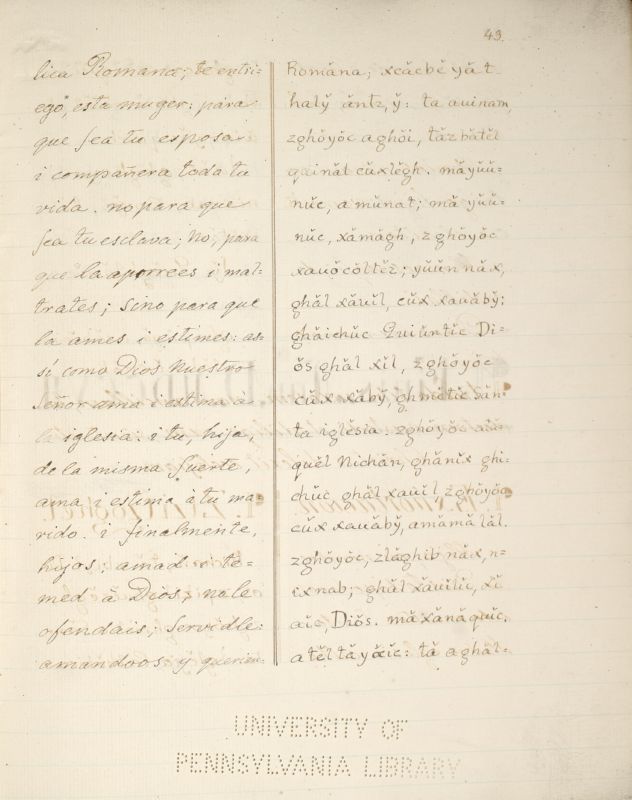 43.
lica Romana; te entri-
ego, esta muger: para
que sea tu esposa
i compañera toda tu
vida. no para que
sea tu esclava; No, para
que la aporrees i mal-
trates; Sino para que
la ames i estimes: as-
sí como Dios Nuestro
Señor ama i estima à
la iglesia. i tu, hija,
de la misma suerte,
ama i estima à tu ma-
rido. i finalmente,
hijos; amad i te-
med à Dios; no le
ofendais; Servidle:
amandoos y querien-
Romăna; xcăcbĕ yăt
halў ăntz,ў: ta auinam,
zghŏyŏc aghŏi, tăzbătĕl
qainăl cŭxlĕgh. măyŭŭ-
nŭc, amŭnat; mă yŭŭ-
nŭc, xămăgh, zghŏyŏc
xauŏcŏltĕz; yŭŭn năx,
ghăl xăuĭl, cŭx xauăbў;
ghăichŭc Quiŭntĭc Di-
ŏs ghăl xĭl, zghŏyŏc
cŭx xăbў, ghmĕtĭc săn-
ta iglĕsia. zghŏyŏc
quĕl Nichăn, ghănĭx ghi-
chŭc, ghăl xauĭl, zghŏyŏc
cŭx xauabў, amămă lăl.
zghŏyŏc, zlăghĭb năx, n-
ixnab; ghăl xăuilĭc, xĭ
aĭc, Diŏs. mă xănăquĭc,
atĕltăyăĭc: tă aghăl-
UNIVERSITY OF
PENNSYLVANIA LIBRARY